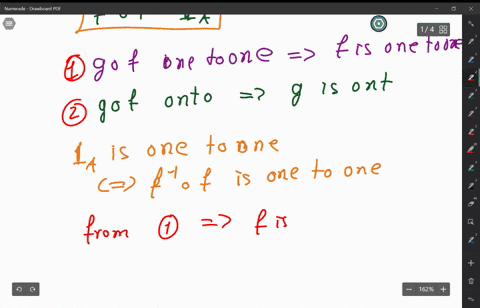 Numerade - Drawboard PDF
1/4
f⁻¹ o f = 1_A
① gof one to one => f is one to one
② gof onto => g is ont
1_A is one to one
<=> f⁻¹ o f is one to one
from ① => f is
162%